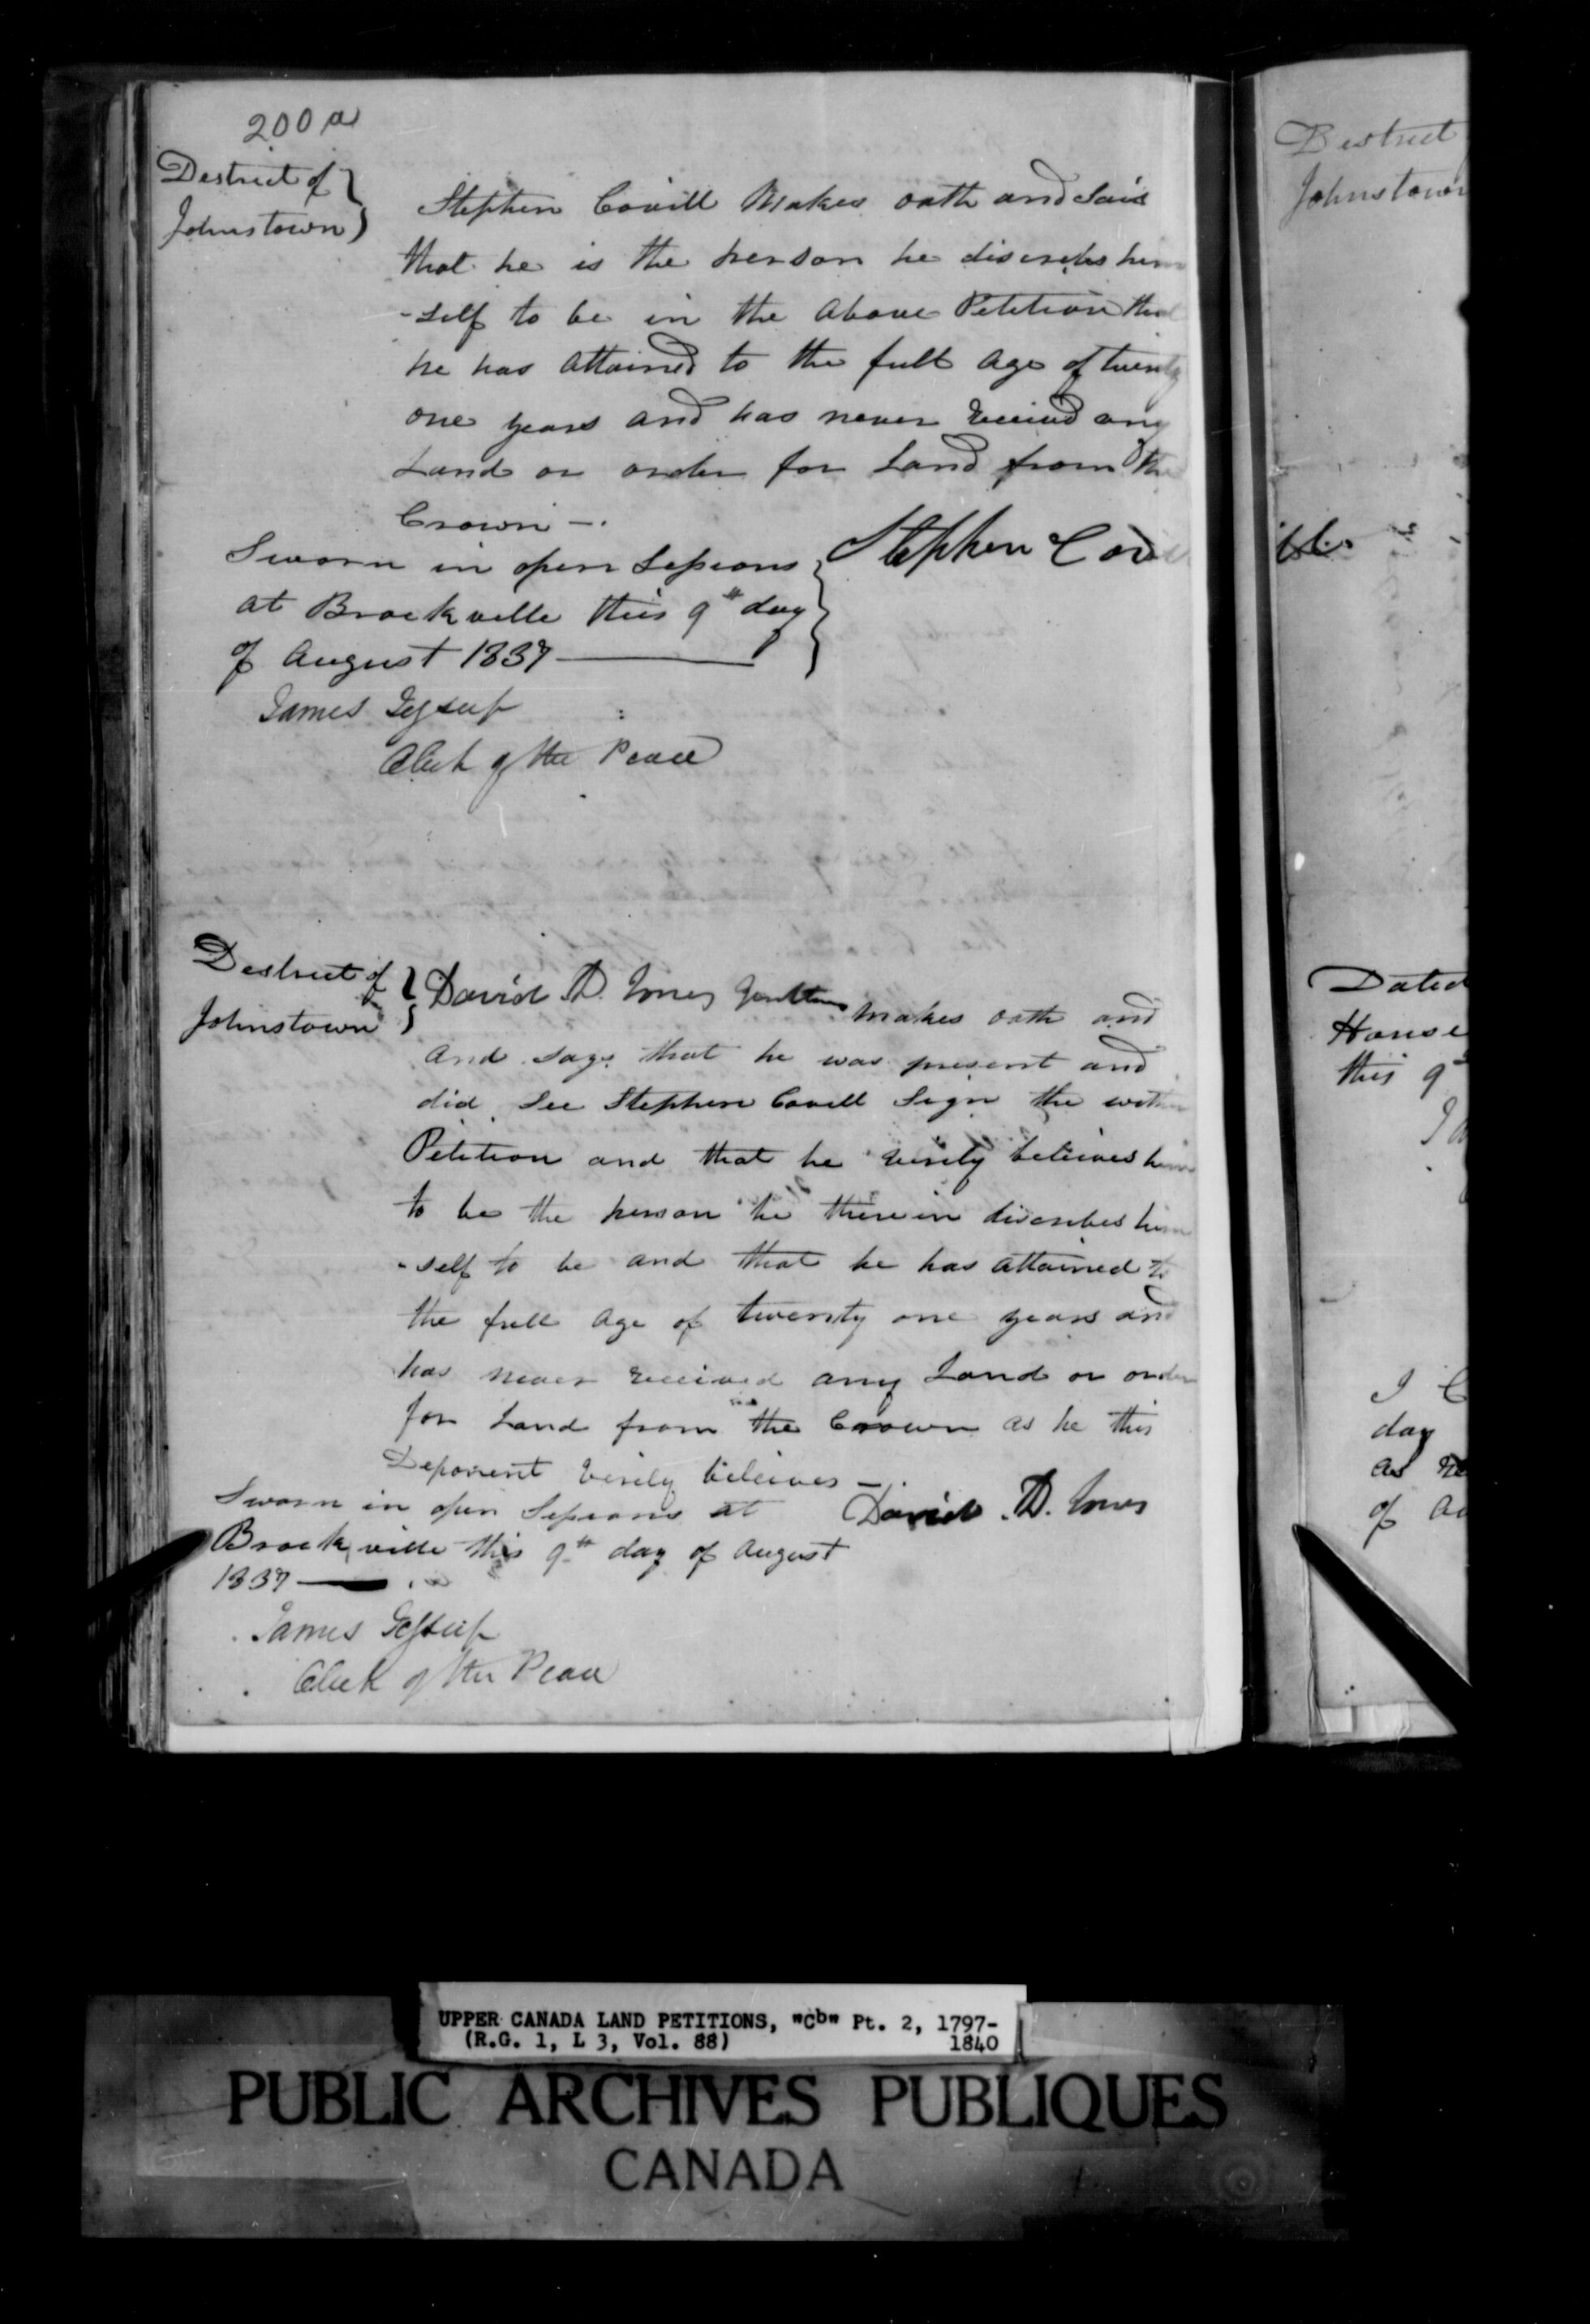 200 a
District of
Johnstown
Stephen Covill Makes oath and Sais
that he is the person he discribes him
-self to be in the above Petition that
he has attained to the full age of twenty
one years and has never received any
Land or order for Land from the
Crown —.
Stephen Covi
Sworn in open Sessions
at Brockville this 9th day
of August 1837
James Jessup
Clerk of the Peace
District of
Johnstown
David D. Jones Gentleman makes oath and
and says that he was present and
did See Stephen Covill Sign the within
Petition and that he verily believes him
to be the person he therein discribes him
-self to be and that he has attained to
the full age of twenty one years and
has never received any Land or order
for Land from the Crown as he this
Deponent verily believes —.
David D. Jones
Sworn in open Sessions at
Brockville this 9th day of August
1837
James Jessup
Clerk of the Peace
District
Johnstown
Dated
House
this 9
I
day
as
of
UPPER CANADA LAND PETITIONS, "Cb" Pt. 2, 1797-
(R.G. 1, L 3, Vol. 88) 1840
PUBLIC ARCHIVES PUBLIQUES
CANADA